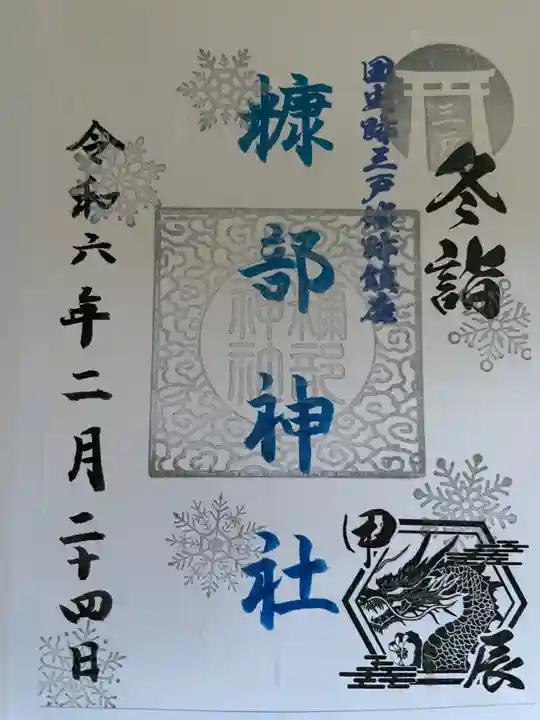 冬詣
国史跡三戸城跡鎮座
三戸
糠部神社
糠部神社
令和六年二月二十四日
甲辰